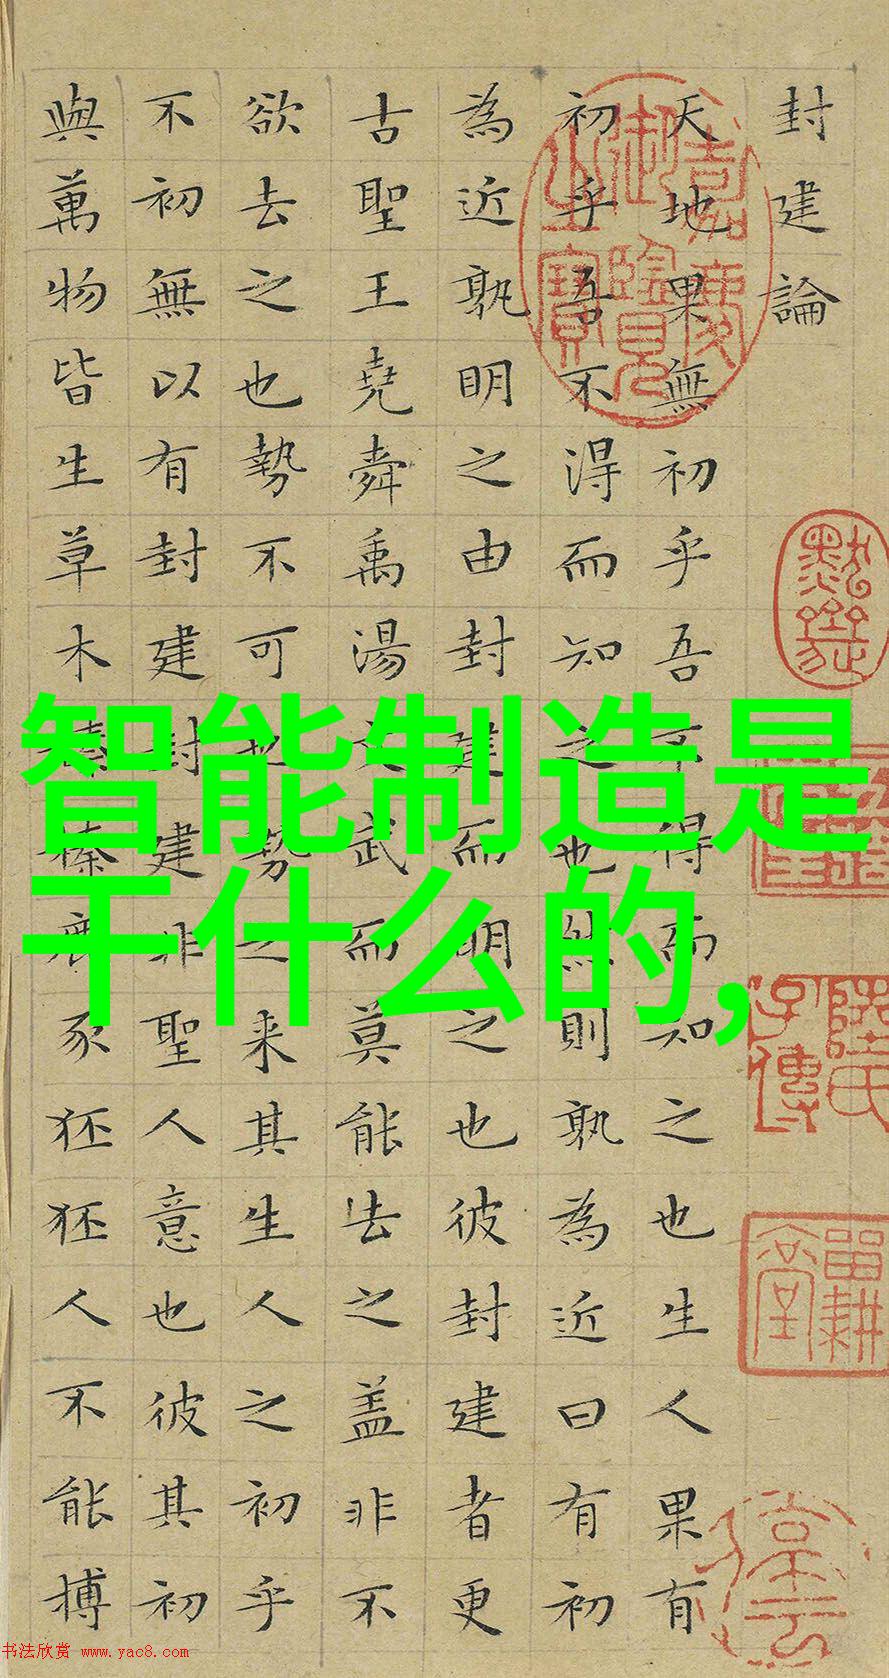 封建論
天地果無初乎吾不得而知之也生人果有
初乎吾不得而知之也然則孰為近曰有初
為近孰明之由封建而明之也彼封建者更
古聖王堯舜禹湯文武而莫能去之盖非不
欲去之也勢不可也勢之来其生人之初乎
不初無以有封建封建非聖人意也彼其初
與萬物皆生草木榛榛鹿豕狉狉人不能搏
嘉慶御覽之寶
陸氏子傳
畱耕堂
智能制造是
干什么的,
书法欣赏 www.yac8.com